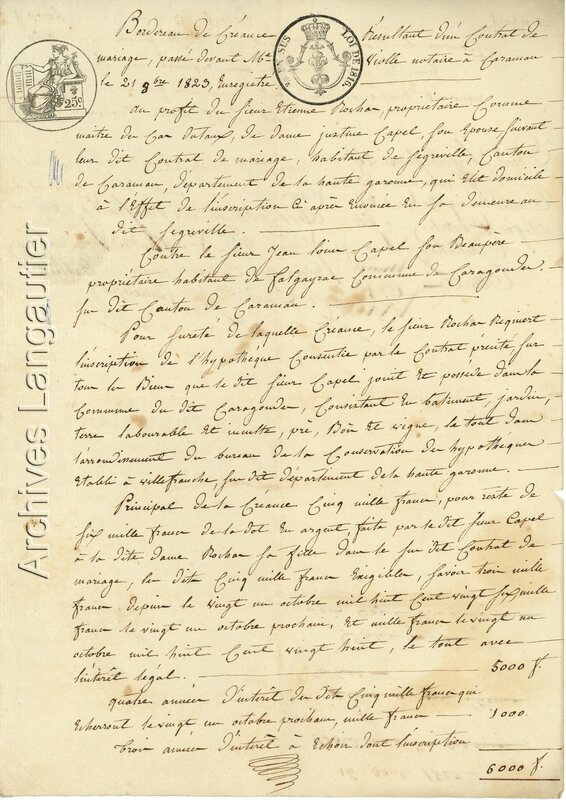 Bordereau de Créance Résultant d'un Contrat de
mariage, passé devant Me Violle notaire à Caraman
le 21 8bre 1823, Enregistré
au profit du sieur Etienne Rochas, propriétaire Comme
maitre du Cas dotaux, de dame justine Capel, son Epouse suivant
leur dit Contrat de mariage, habitant de segreville, Canton
de Caraman, département de la haute garonne, qui Elit domicile
à l'Effet de l'inscription Ci après Enoncée En sa demeure au
dit segreville.
Contre le sieur Jean Louis Capel son Beaupère
propriétaire habitant de falgayrac Commune de Caragoudes
su dit Canton de Caraman.
Pour sureté de laquelle Créance, le sieur Rochas Requiert
l'inscription de l'hypothèque Consentie par le Contrat précité sur
tous les Biens que le dit sieur Capel jouit Et possède dans la
Commune du dit Caragoudes, Consistant En batiment, jardin,
terre labourable Et inculte, pré, Bois Et vigne, le tout dans
l'arrondissement du bureau de la Conservation des hypothèques
Etabli à villefranche su dit département de la haute garonne.
Principal de la Créance Cinq mille francs, pour reste de
six mille francs de la dot En argent faite par le dit sieur Capel
à la dite dame Rochas sa fille dans le su dit Contrat de
mariage, les dits Cinq mille francs Exigibles, savoir trois mille
francs depuis le vingt un octobre mil huit Cent vingt six, mille
francs le vingt un octobre prochain, Et mille francs le vingt un
octobre mil huit Cent vingt huit, le tout avec
l'intérêt légal. 5000 f.
quatre années d'intérêt des dits Cinq mille francs qui
Echerront le vingt un octobre prochain, mille francs 1000.
trois années d'intérêt à Echoir dont l'inscription
6000 f.
EN SUS
LOI DE 1816
25c
Archives Langautier